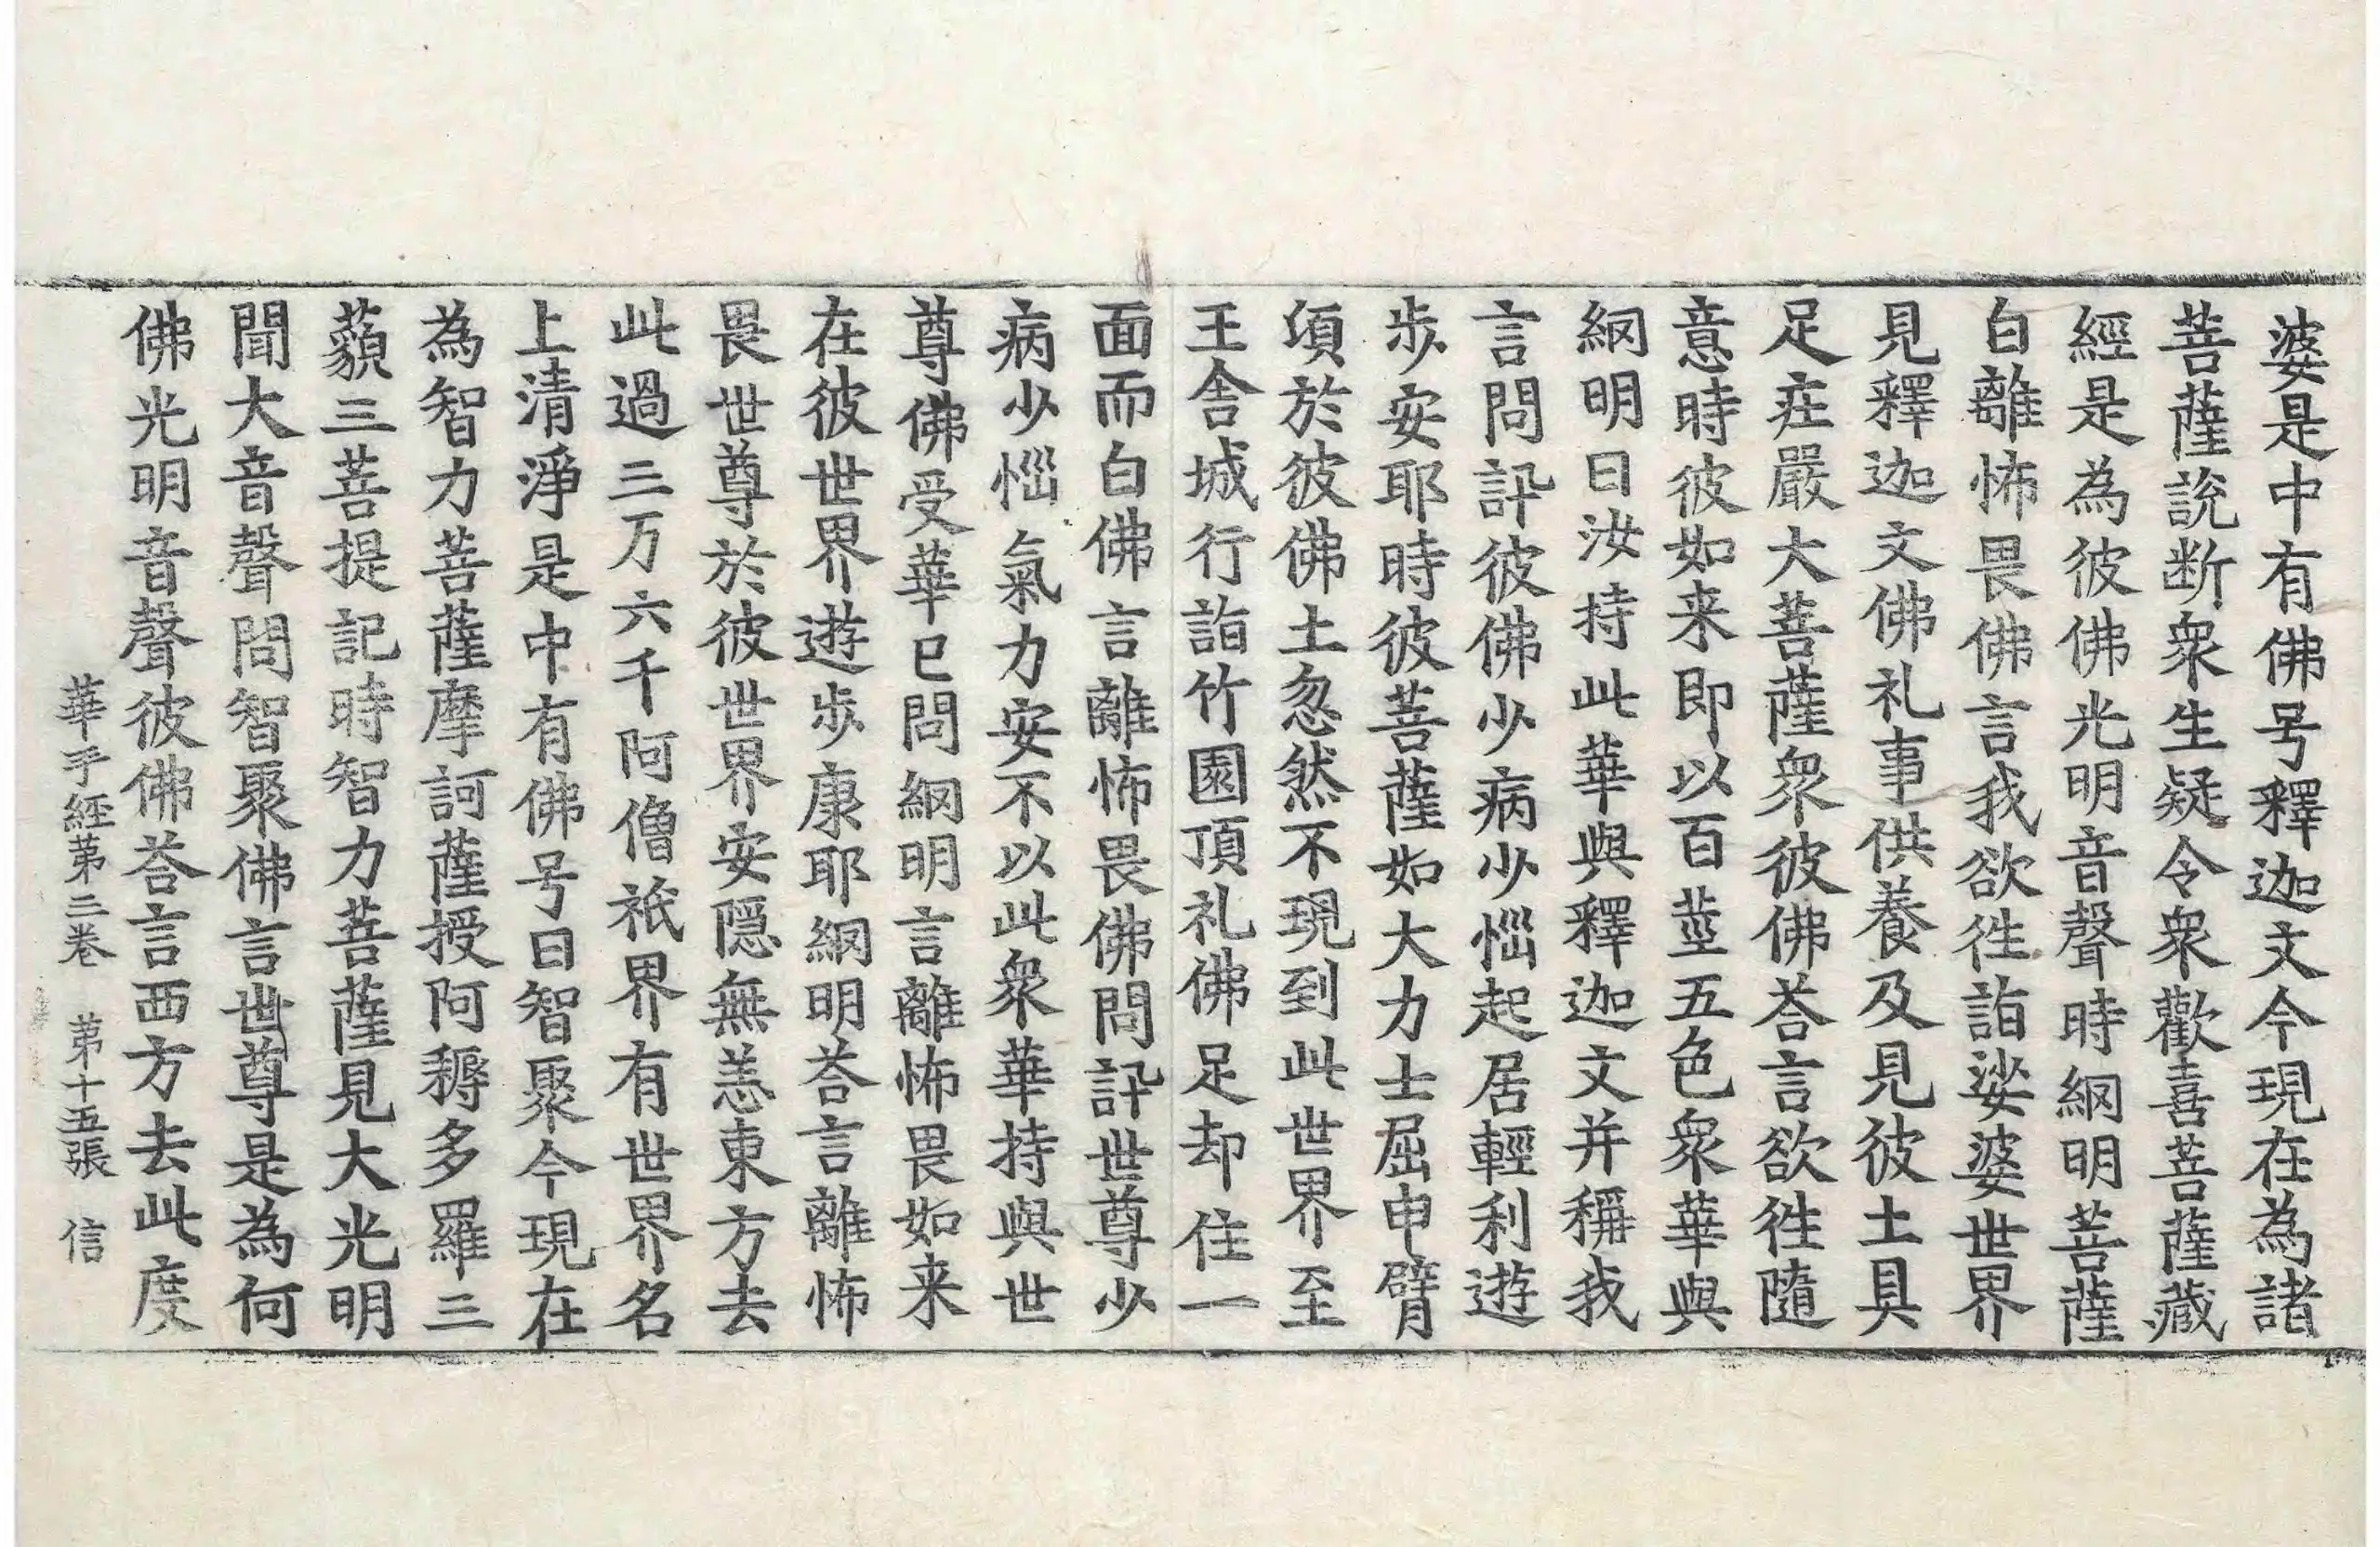 婆是中有佛号釋迦文今現在為諸
菩薩說断衆生疑令衆歡喜菩薩藏
經是為彼佛光明音聲時網明菩薩
白離怖畏佛言我欲徃詣娑婆世界
見釋迦文佛礼事供養及見彼土具
足庄嚴大菩薩衆彼佛荅言欲徃隨
意時彼如来即以百莖五色衆華與
網明曰汝持此華與釋迦文并稱我
言問訊彼佛少病少惱起居輕利遊
步安耶時彼菩薩如大力士屈申臂
頃於彼佛土忽然不現到此世界至
王舍城行詣竹園頂礼佛足却住一
面而白佛言離怖畏佛問訊世尊少
病少惱氣力安不以此衆華持與世
尊佛受華已問網明言離怖畏如来
在彼世界遊步康耶網明荅言離怖
畏世尊於彼世界安隱無恙東方去
此過三万六千阿僧祇界有世界名
上清淨是中有佛号曰智聚今現在
為智力菩薩摩訶薩授阿耨多羅三
藐三菩提記時智力菩薩見大光明
聞大音聲問智聚佛言世尊是為何
佛光明音聲彼佛荅言西方去此度
華手經第三卷 第十五張 信